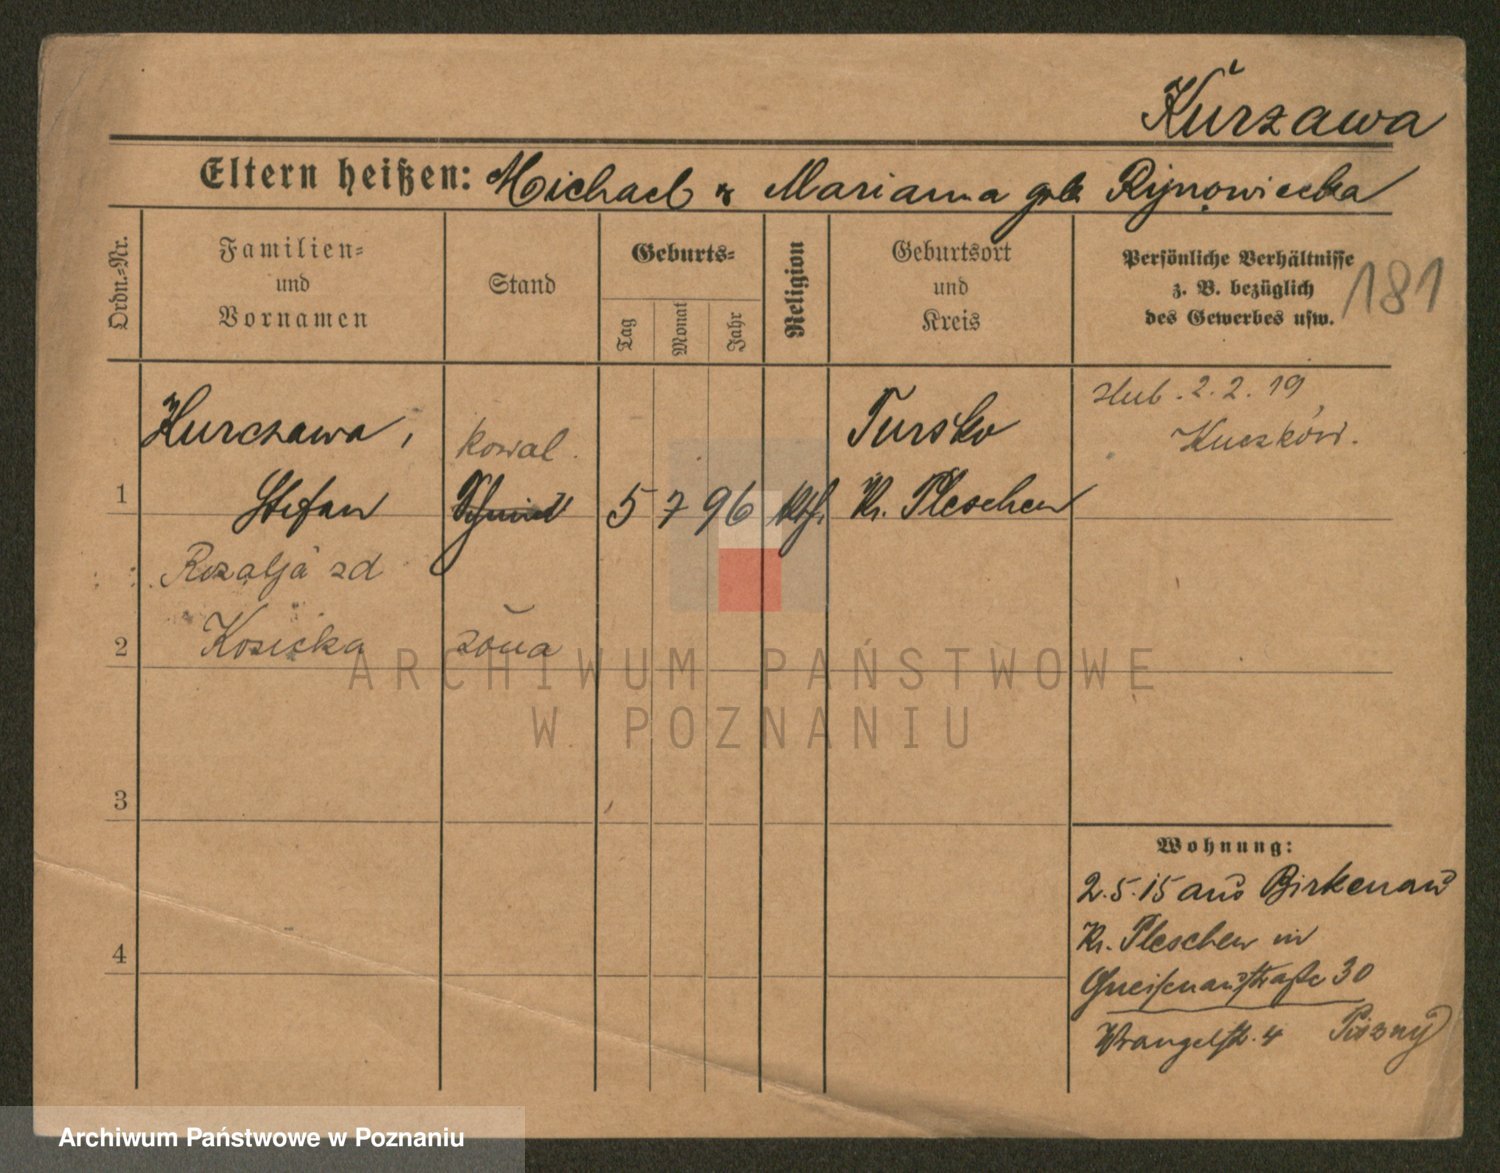 Kurzawa
Eltern heißen: Michael & Marianna geb. Rynowiecka
Ordn.=Nr.
Familien=
und
Vornamen
Stand
Geburts=
Tag
Monat
Jahr
Religion
Geburtsort
und
Kreis
Persönliche Verhältnisse
z. B. bezüglich
des Gewerbes usw.
181
1
Kurczawa,
Stefan
kowal.
Schmied
5 7 96 kth.
Tursko
Kr. Pleschen
slub. 2.2.19
Kuczków.
2
Rozalja zd
Kosicka
żona
3
4
Wohnung:
2.5.15 aus Birkenau
Kr. Pleschen in
Gneisenaustraße 30
Wrangelstr. 4
ARCHIWUM PAŃSTWOWE
W POZNANIU
Archiwum Państwowe w Poznaniu